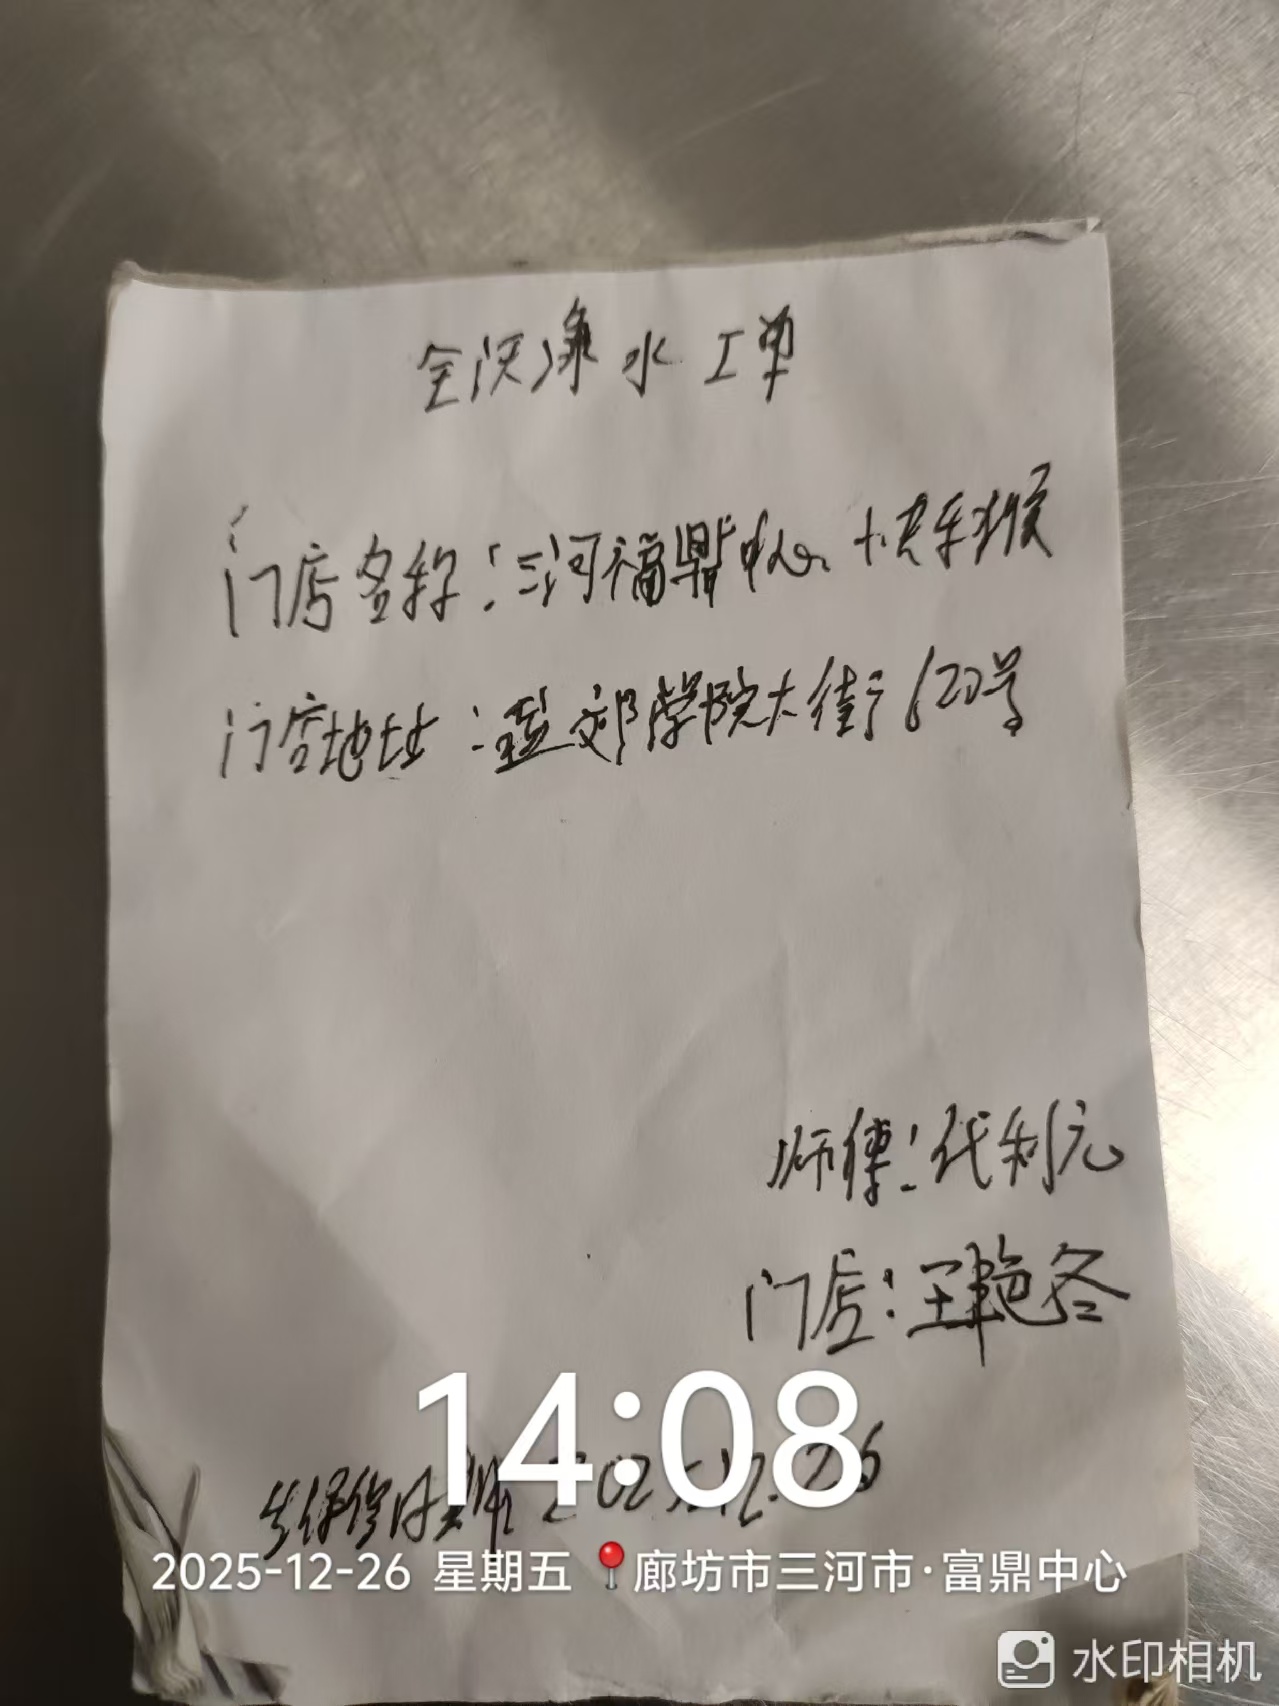 全汉净水工单
门店名称:三河福鼎中心 快乐猴
门店地址:燕郊学院大街620号
师傅:代利元
门店:王艳冬
保修日期 2025.12.26
14:08
2025-12-26 星期五 廊坊市三河市·富鼎中心
水印相机